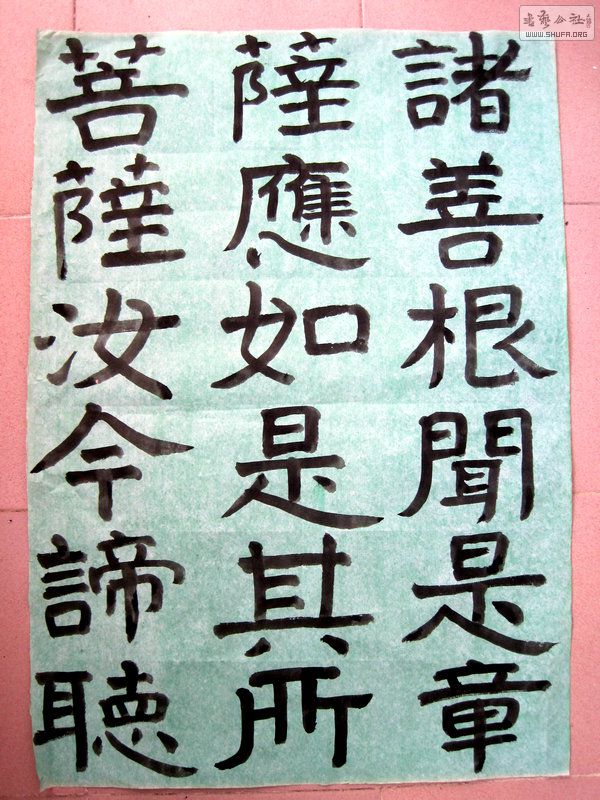 諸善根聞是章
薩應如是其所
菩薩汝今諦聽
書藝公社
WWW.SHUFA.ORG